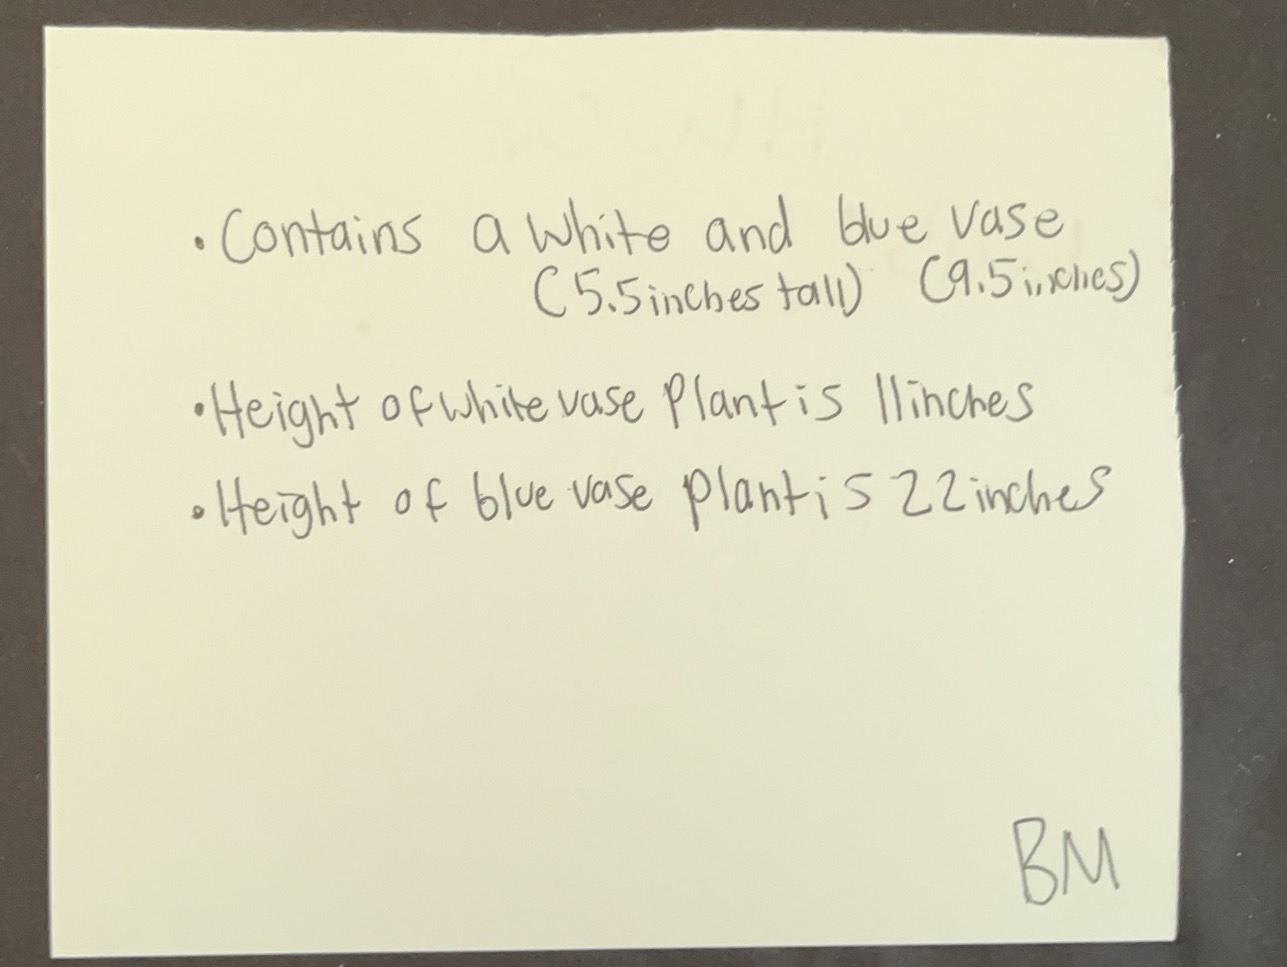 • Contains a white and blue vase
(5.5 inches tall) (9.5 inches)
• Height of white vase plant is 11 inches
• Height of blue vase plant is 22 inches
BM